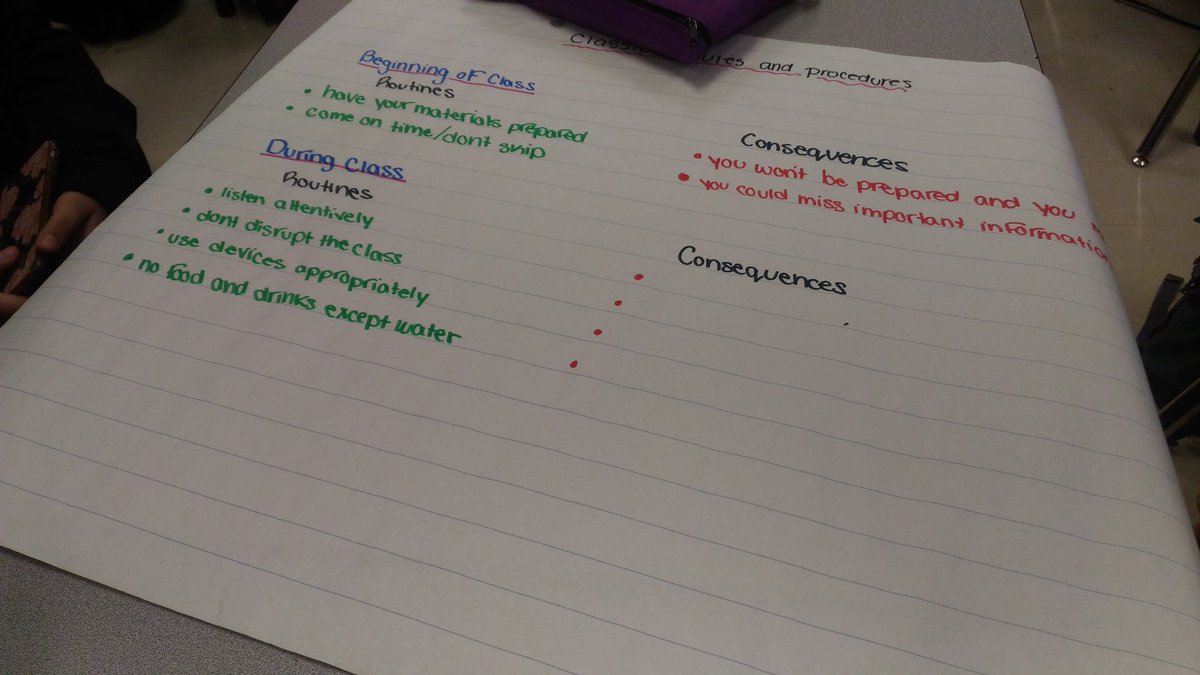 and procedures
Beginning of Class
Routines
• have your materials prepared
• come on time/dont skip
Consequences
• you won't be prepared and you
• you could miss important informatio
During Class
Routines
• listen attentively
• dont disrupt the class
• use devices appropriately
• no food and drinks except water
Consequences
•
•
•
•